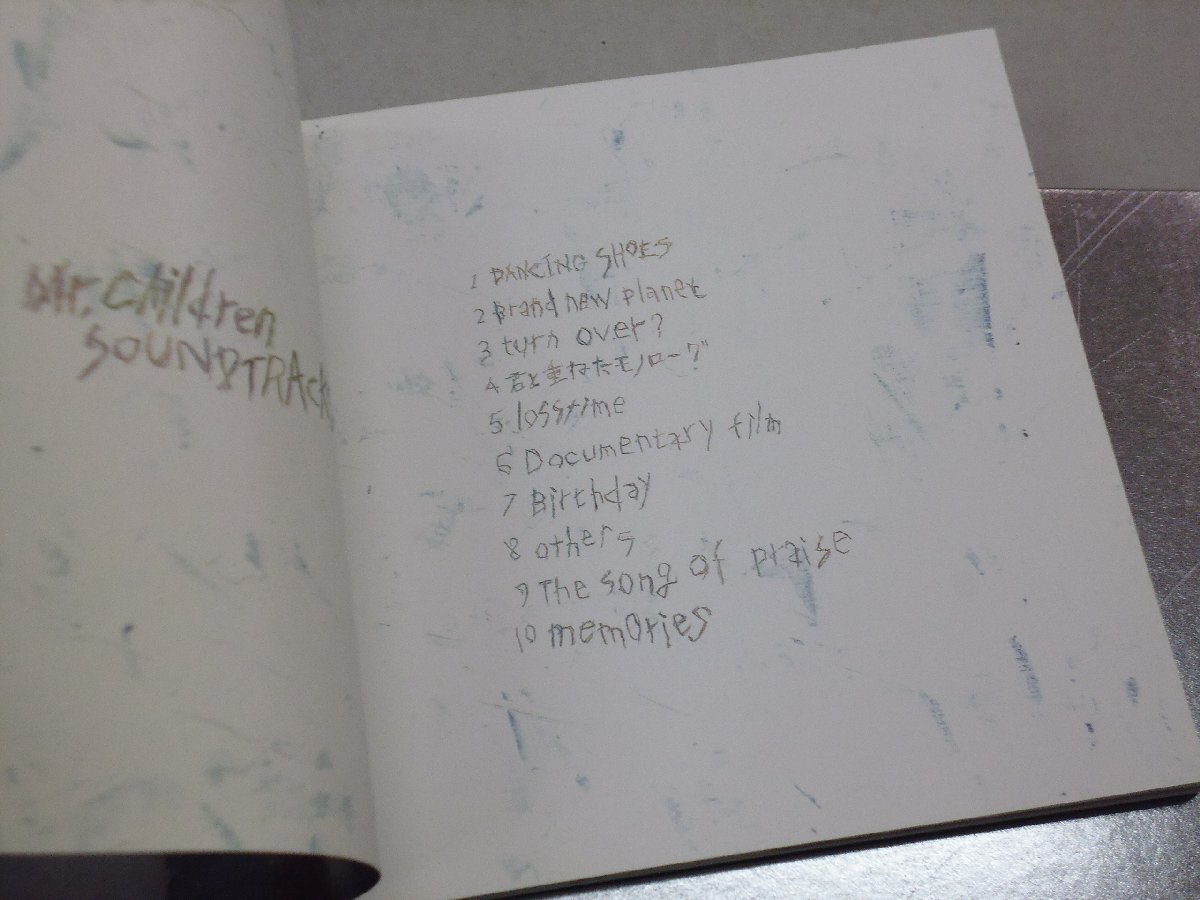 Mr.Children
SOUNDTRACK
1 DANCING SHOES
2 Brand new planet
3 turn over?
4 君と重ねたモノローグ
5 losstime
6 Documentary film
7 Birthday
8 others
9 The song of praise
10 memories